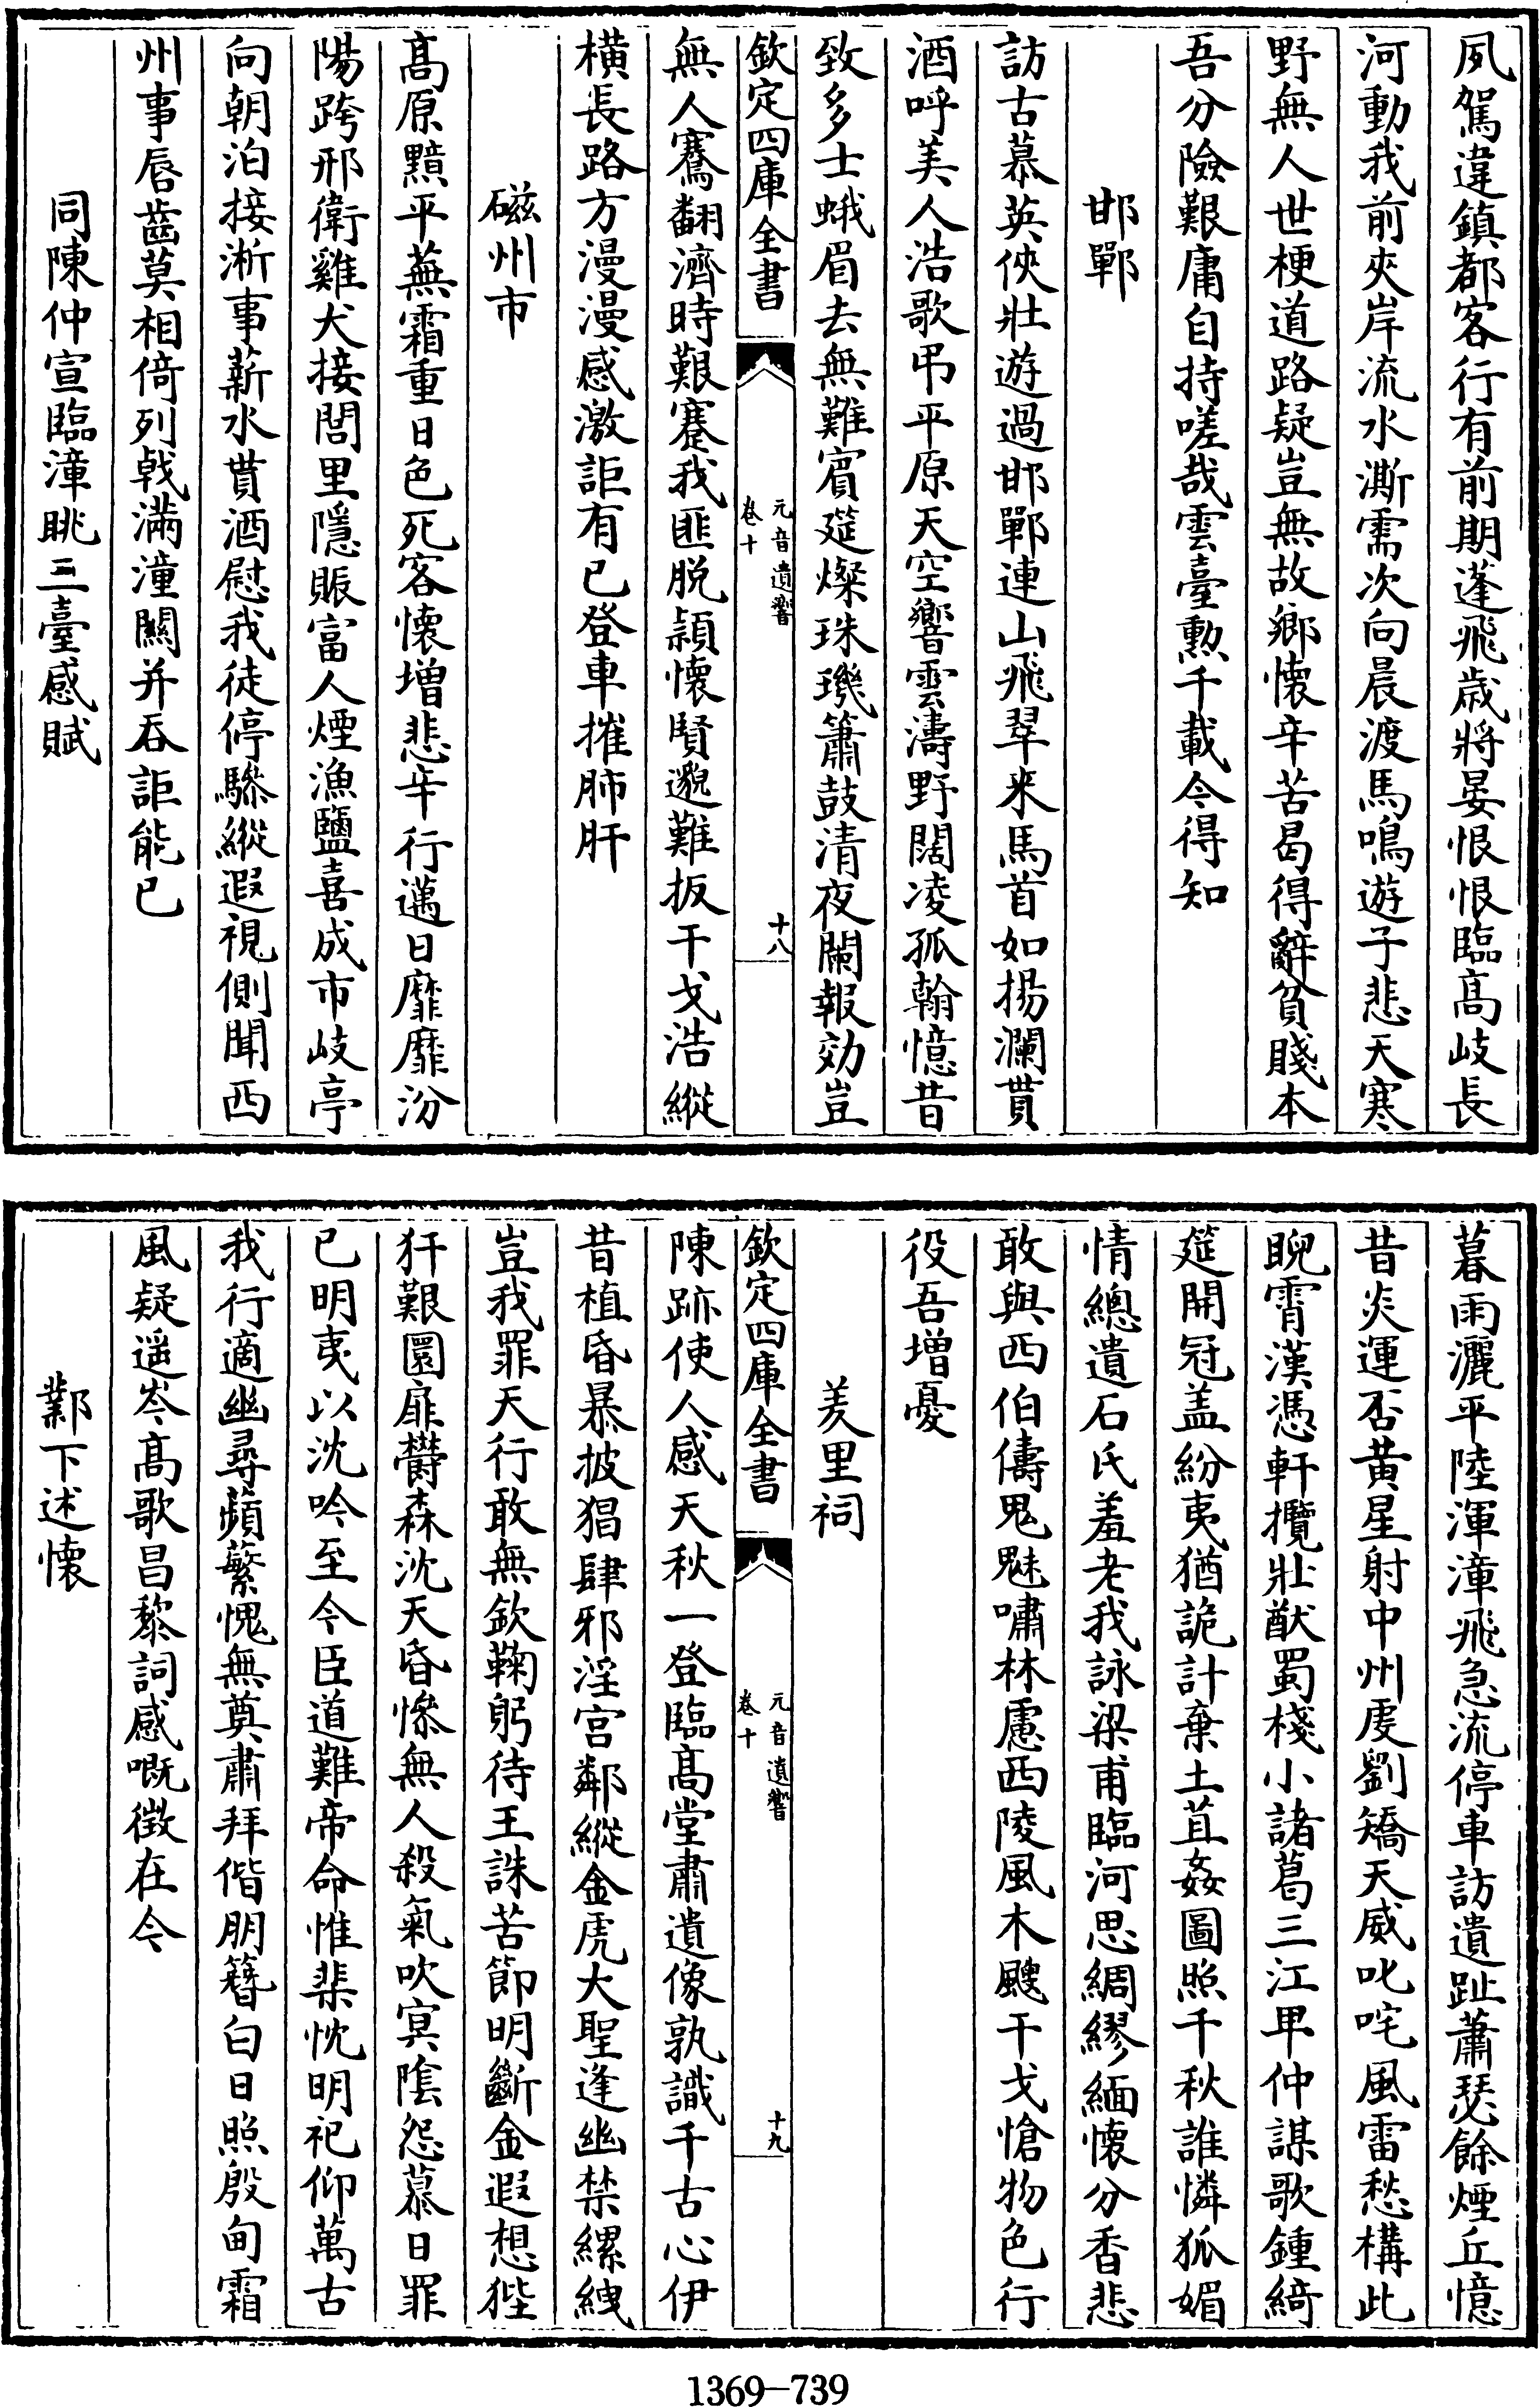 夙駕違鎮都客行有前期蓬飛歲將晏恨恨臨高岐長
河動我前夾岸流水澌需次向晨渡馬鳴遊子悲天寒
野無人世梗道路疑豈無故鄉懷辛苦曷得辭貧賤本
吾分險艱庸自持嗟哉雲臺勲千載令得知
邯鄲
訪古慕英俠壯遊過邯鄲連山飛翠来馬首如揚瀾貰
酒呼美人浩歌弔平原天空響雲濤野闊凌孤翰憶昔
致多士蛾眉去無難賓筵燦珠璣簫鼓清夜闌報効豈
欽定四庫全書
元音遺響
卷十
十八
無人騫翻濟時艱蹇我匪脱穎懷賢邈難扳干戈浩縱
橫長路方漫漫感激詎有已登車摧肺肝
磁州市
高原黯平蕪霜重日色死客懷增悲辛行邁日靡靡汾
陽跨邢衛雞犬接閭里隱賑富人煙漁鹽喜成市岐亭
向朝泊接淅事薪水貰酒慰我徒停驂縱遐視側聞西
州事唇齒莫相倚列戟滿潼關并吞詎能已
同陳仲宣臨漳眺三臺感賦
暮雨灑平陸渾漳飛急流停車訪遺趾蕭瑟餘煙丘憶
昔炎運否黄星射中州虔劉矯天威叱咤風雷愁構此
睨霄漢憑軒攬壯猷蜀棧小諸葛三江卑仲謀歌鍾綺
筵開冠盖紛夷猶詭計棄土苴姦圖照千秋誰憐狐媚
情總遺石氏羞老我詠梁甫臨河思綢繆緬懷分香悲
敢與西伯儔鬼魅嘯林慮西陵風木颼干戈愴物色行
役吾增憂
羑里祠
欽定四庫全書
元音遺響
卷十
十九
陳跡使人感天秋一登臨高堂肅遺像孰識千古心伊
昔植昏暴披猖肆邪淫宫鄰縱金虎大聖逢幽禁縲絏
豈我罪天行敢無欽鞠躬待王誅苦節明斷金遐想狴
犴艱圜扉欝森沈天昏慘無人殺氣吹冥隂怨慕日罪
已明夷以沈吟至今臣道難帝命惟棐忱明祀仰萬古
我行適幽尋蘋蘩愧無奠肅拜偕朋簪白日照殷甸霜
風疑遥岑高歌昌黎詞感嘅徴在今
鄴下述懷
1369—739